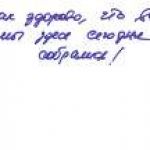 ак здорово, что в
мы здесь сегодня
собрались!